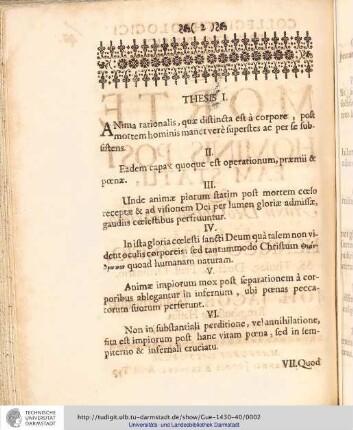 ( 2 )
THESIS I.
ANima rationalis, quæ distincta est à corpore, post
mortem hominis manet verè superstes ac per se sub-
sistens.
II.
Eadem capax quoque est operationum, præmii &
pœnæ.
III.
Unde animæ piorum statim post mortem cœlo
receptæ & ad visionem Dei per lumen gloriæ admissæ,
gaudiis cœlestibus perfruuntur.
IV.
In ista gloria cœlesti sancti Deum quà talem non vi-
dent oculis corporeis: sed tantummodo Christum
quoad humanam naturam.
V.
Animæ impiorum mox post separationem à cor-
poribus ablegantur in infernum, ubi pœnas pecca-
torum suorum perferunt.
VI.
Non in substantiali perditione, vel annihilatione,
sita est impiorum post hanc vitam pœna, sed in sem-
piterno & infernali cruciatu.
VII. Quod
TECHNISCHE
UNIVERSITÄT
DARMSTADT
http://tudigit.ulb.tu-darmstadt.de/show/Gue-1430-40/0002
Universitäts- und Landesbibliothek Darmstadt